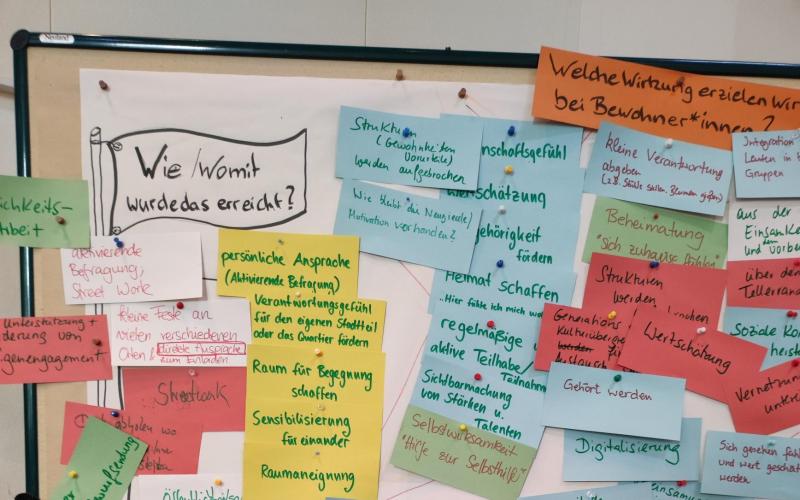 Neuland
Wie/Womit
wurde das erreicht?
aktivierende
Befragung,
Street Work
kleine Feste an
vielen verschiedenen
Orten &
direkte Ansprache
zum Einladen
Streetwork
persönliche Ansprache
(Aktivierende Befragung)
Verantwortungsgefühl
für den eigenen Stadtteil
oder das Quartier fördern
Raum für Begegnung
schaffen
Sensibilisierung
für einander
Raumaneignung
Strukturen
(Gewohnheiten
Vorurteile)
werden aufgebrochen
Wie bleibt die Neugierde/
Motivation vorhanden?
nschaftsgefühl
ertschätzung
gehörigkeit
fördern
Heimat schaffen
..Hier fühle ich mich wo
regelmäßige
aktive Teilhabe/
Teilnahm
Sichtbarmachung
von Stärken u.
Talenten
Selbstwirksamkeit
"Hilfe zur Selbsthilfe"
Welche Wirkung erzielen wir
bei Bewohner*innen?
kleine Verantwortung
abgeben
(z.B. Stühle stellen, Blumen gießen)
Beheimatung
"sich zuhause fühlen"
Strukturen
werden
Generations
Kulturübergr
werden
Austausch
Wertschätzung
Gehört werden
Digitalisierung
Integration
Leuten in b
Gruppen
aus der
Einsamke
und dem
Vorbere
über den
Tellerrand
Soziale Kon
herste
Vernetzun
untere
Sich gesehen füh
und wert geschät
werden
ichkeits-
rbeit
Unterstützung +
derung von
genengagement
abholen wo